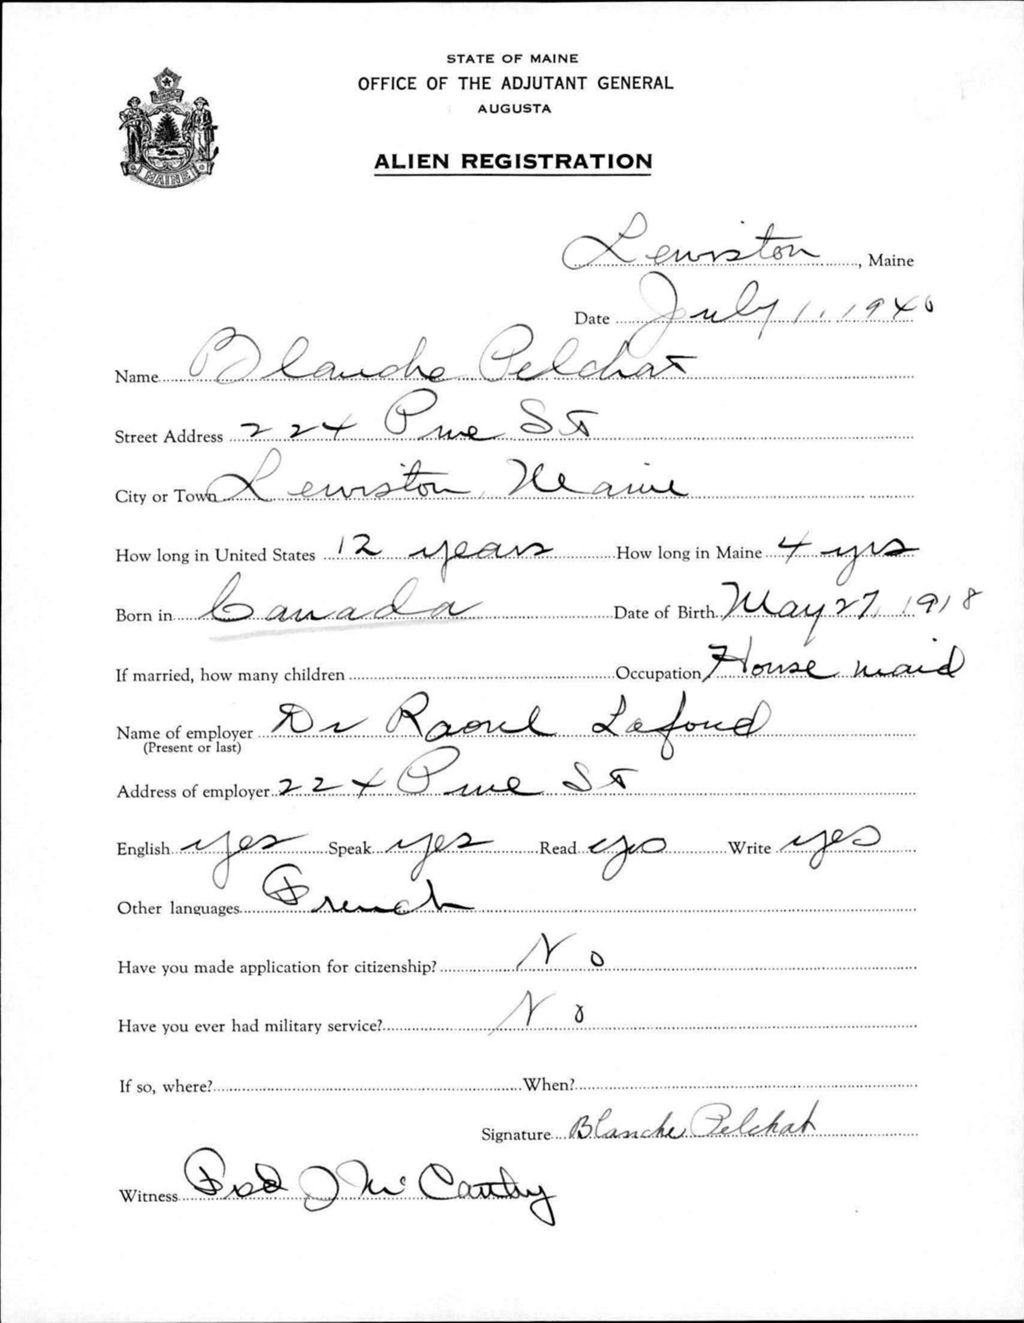 STATE OF MAINE
OFFICE OF THE ADJUTANT GENERAL
AUGUSTA
ALIEN REGISTRATION
MAINE
Lewiston, Maine
Date July 1, 1940
Name Blanche Pelchat
Street Address 224 Pine St
City or Town Lewiston, Maine
How long in United States 12 years How long in Maine 4 yrs
Born in Canada Date of Birth May 27, 1918
If married, how many children Occupation House maid
Name of employer Dr Raoul Lafond
(Present or last)
Address of employer 224 Pine St
English yes Speak yes Read yes Write yes
Other languages French
Have you made application for citizenship? No
Have you ever had military service? No
If so, where? When?
Signature Blanche Pelchat
Witness J McCarthy